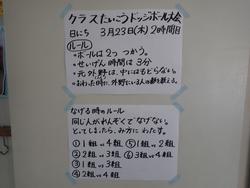 クラスたいこうドッジボール大会
日にち 3月23日(木)2時間目
ルール
・ボールは2つ つかう。
・せいげん時間は3分
・元外野は、中にはもどらない。
・おわった時に、外野にいる人の数を数える。
なげる時のルール
同じ人がれんぞくでなげない。
とってしまったら、み方にわたす。
①1組 vs 4組 ⑤1組 vs 2組
②1組 vs 3組 ⑥3組 vs 4組
③2組 vs 3組
④2組 vs 4組